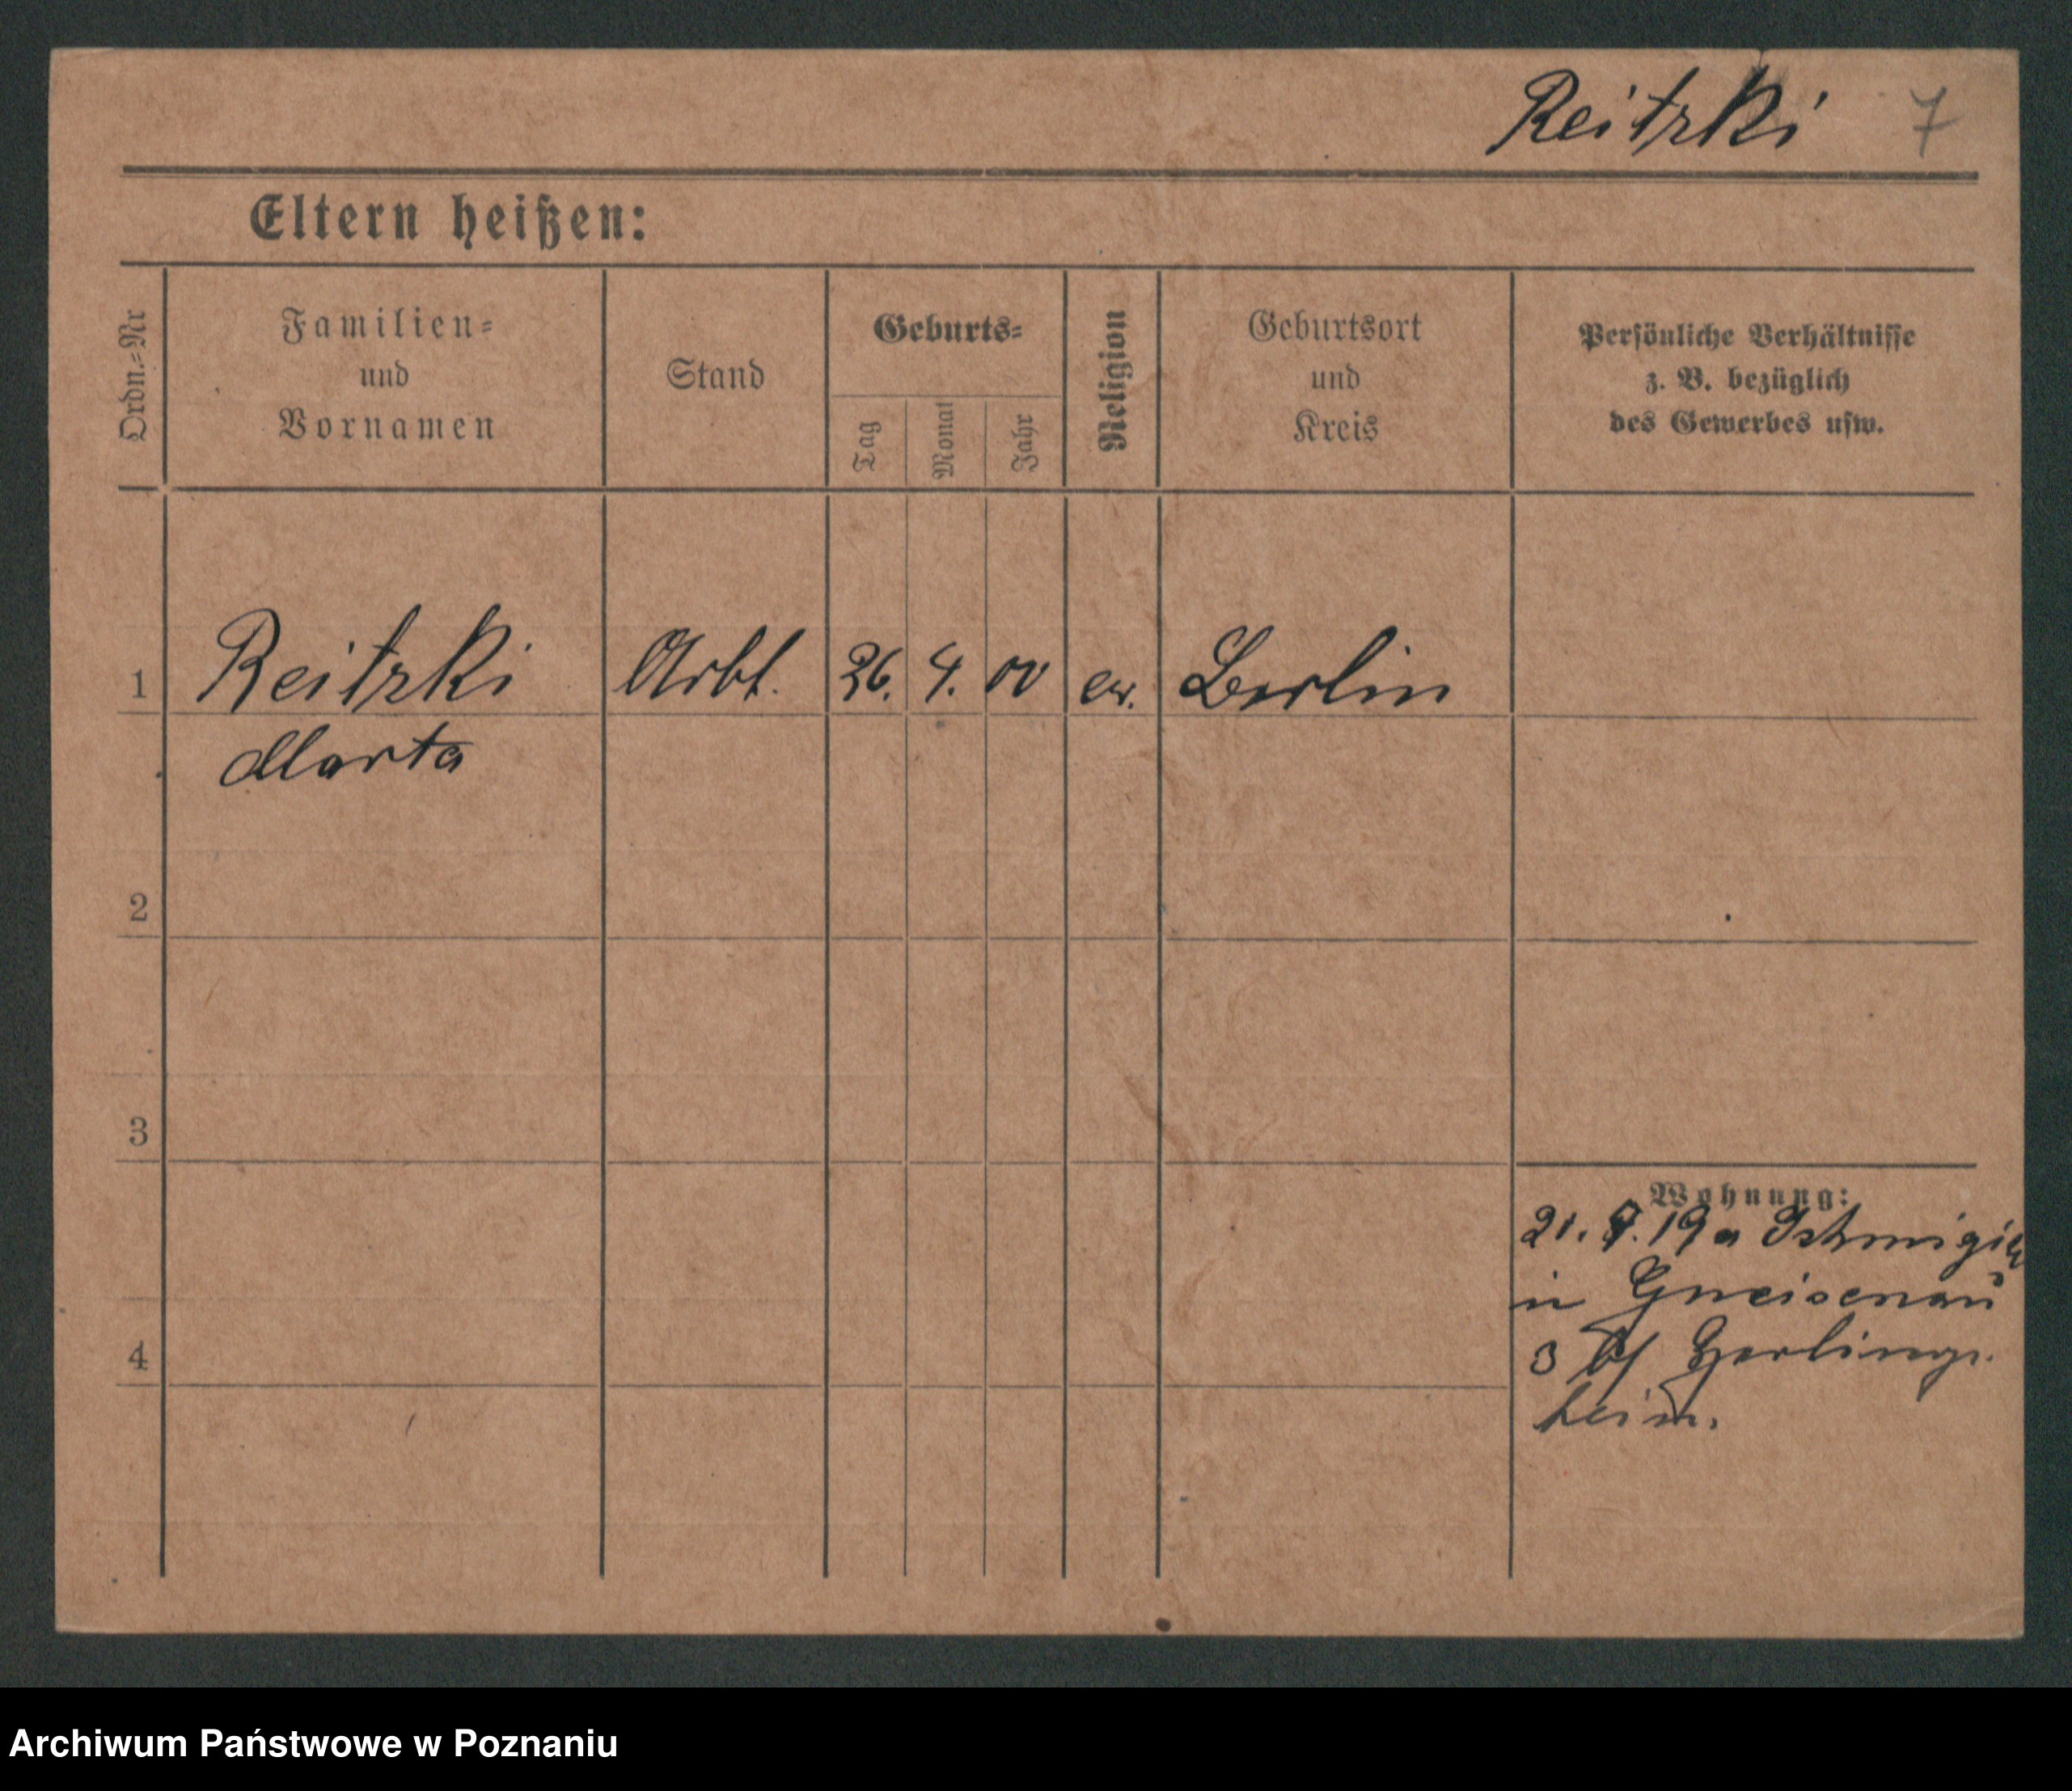 Reitzki 7
Eltern heißen:
Ordn.-Nr
Familien-
und
Vornamen
Stand
Geburts-
Tag
Monat
Jahr
Religion
Geburtsort
und
Kreis
Persönliche Verhältnisse
z. B. bezüglich
des Gewerbes usw.
1 Reitzki Arbt. 26. 4. 00 ev. Berlin
Marta
2
3
4
Wohnung:
21. 19 a Schmigiel
in Gneisenau
3 b/ Gerlings
heim.
Archiwum Państwowe w Poznaniu